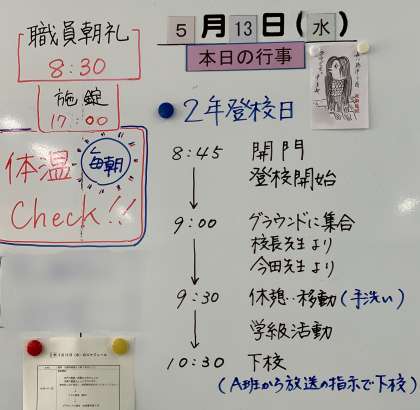 職員朝礼
8:30
施錠
17:00
体温
毎朝
Check!!
5月13日(水)
本日の行事
2年登校日
8:45 開門
登校開始
9:00 グラウンドに集合
校長先生より
今田先生より
9:30 休憩‥移動(手洗い)
学級活動
10:30 下校
(A班から放送の指示で下校)